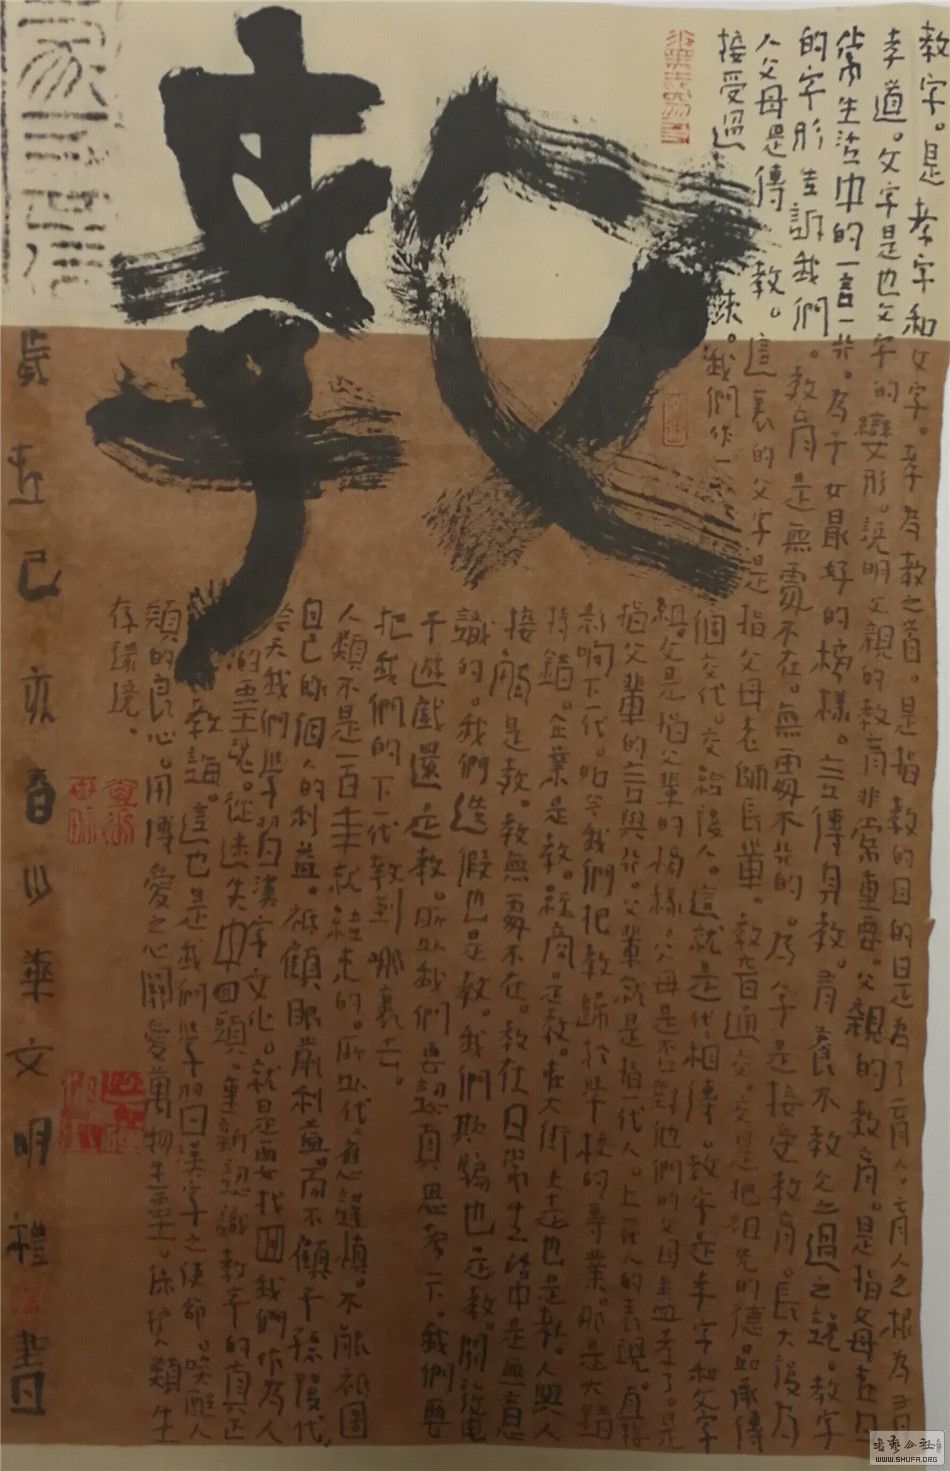 教
教字。是孝字和文字。孝為教之首。是指教的目的是為了育人。育人之根為孝
孝道。文字是也文字的變形。說明父親的教育非常重要。父親的教育。是指父母在日
常生活中的一言一行。為子女最好的榜樣。言傳身教。育養不教父之過之說。教字
的字形告訴我們。教育是無處不在。無處不行的。為子是接受教育。長大後為
人父母是傳教。這裏的父字是指父母老師長輩。教育通交。交是把祖先的德品承傳
接受過 我們作一個交代。交給後人。這就是代代相傳。教字是孝字和文字
組。父是指父輩的榜樣。父母是否對他們的父母盡孝了。是
指父輩的言與行。父輩就是指一代人。上一代人的表現。直接
影响下一代。如今我們把教歸於學校的專業。那是大錯
特錯。企業是教。經商。是教。在大街上走也是教。人與人
接觸是教。教無處不在。教在日常生活中是無意
識的。我們造假也是教。我們欺騙也是教。開 電
子遊戲還是教。所以我們要認真思考一下。我們要
把我們的下一代教到哪裏去。
人類不是一百年就結束的。所以代應謹慎。不能祇圖
自己的個人的利益。祇顧眼前利益。而不顧子孫後代,
今天我們學習漢字文化。就是要找回我們作為人
的靈魂。從迷失中回頭。重新認識教字的真正
教誨。這也是我們學習漢字之使命。喚醒人
類的良心。用博愛之心關愛萬物生靈。保護人類生
存環境。
歲在己亥春日華文明禮書
書藝公社
WWW.SHUFA.ORG